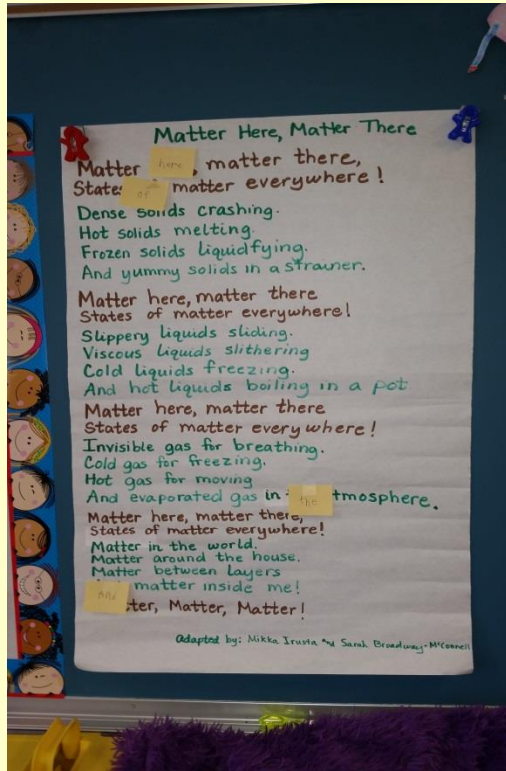 Matter Here, Matter There
Matter here, matter there,
States of matter everywhere!
Dense solids crashing.
Hot solids melting.
Frozen solids liquidfying.
And yummy solids in a strainer.
Matter here, matter there
States of matter everywhere!
Slippery liquids sliding.
Viscous liquids slithering
Cold liquids freezing.
And hot liquids boiling in a pot
Matter here, matter there
States of matter everywhere!
Invisible gas for breathing.
Cold gas for freezing.
Hot gas for moving
And evaporated gas in the tmosphere.
Matter here, matter there,
States of matter everywhere!
Matter in the world.
Matter around the house.
Matter between layers
And matter inside me!
tter, Matter, Matter!
Adapted by: Mikka Irusta and Sarah Broadway-McConnell